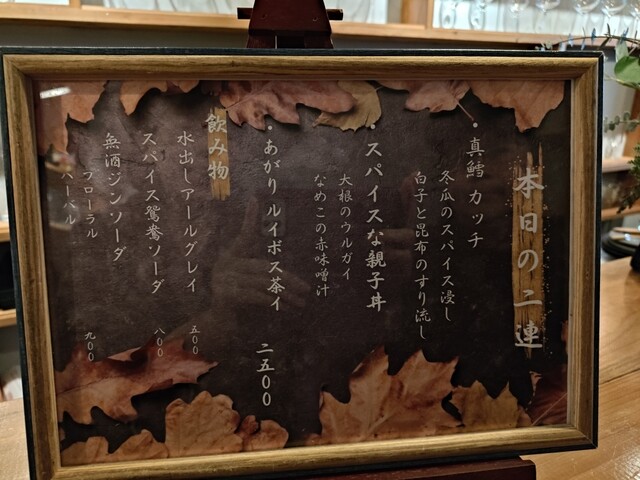 本日の二連
・真鱈 カッチ
冬瓜のスパイス浸し
白子と昆布のすり流し
・スパイスな親子丼
大根のウルガイ
なめこの赤味噌汁
・あがり ルイボス茶イ
二五〇〇
飲み物
水出しアールグレイ 五〇〇
スパイス鴛鴦ソーダ 八〇〇
無酒ジンソーダ
フローラル
ハーバル 九〇〇